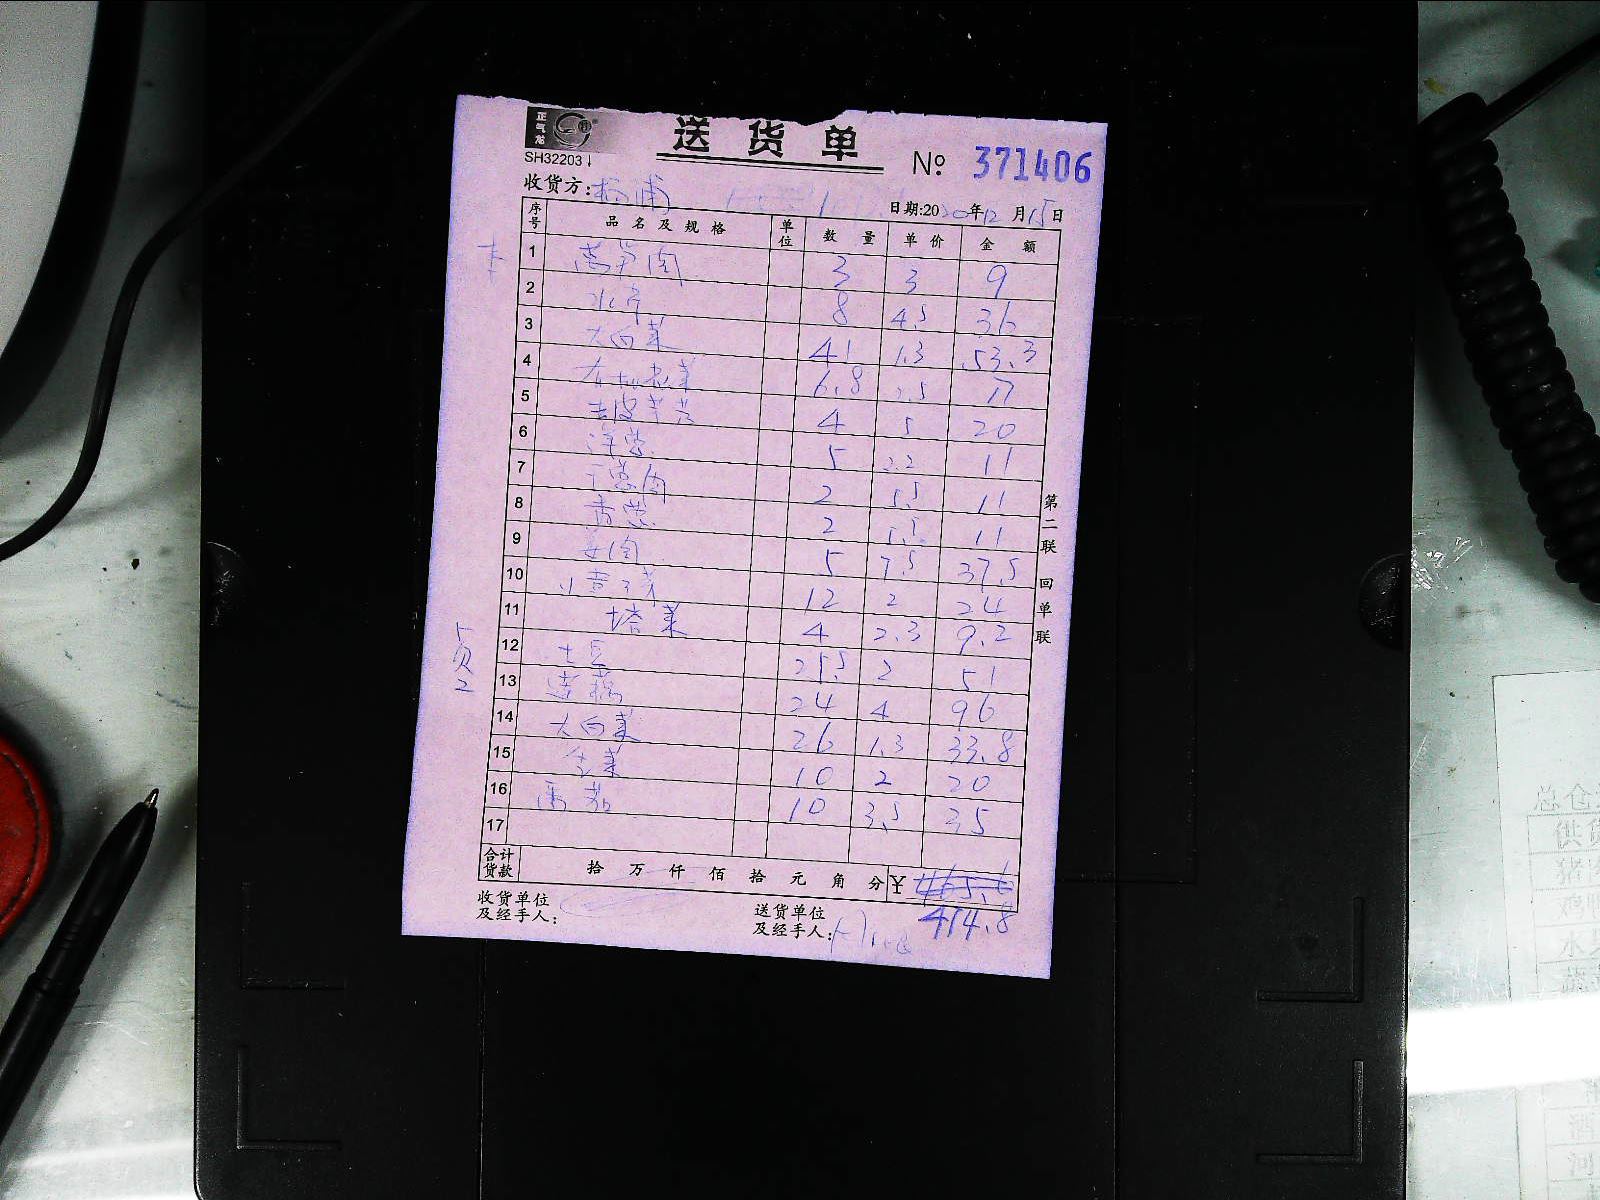 正气龙
送货单
SH32203
№ 371406
收货方: 杨浦
日期:2020年12月15日
序号 品名及规格 单位 数量 单价 金额
1 莴笋肉 3 3 9
2 水芹 8 4.5 36
3 大白菜 41 1.3 53.3
4 6.8 2.5 17
5 去皮芋艿 4 5 20
6 洋葱 5 2.2 11
7 2 5.5 11
8 香葱 2 5.5 11
9 姜肉 5 7.5 37.5
10 12 2 24
11 塔菜 4 2.3 9.2
12 土豆 25.5 2 51
13 莲藕 24 4 96
14 大白菜 26 1.3 33.8
15 10 2 20
16 番茄 10 3.5 35
17
合计货款 拾 万 仟 佰 拾 元 角 分 ¥
414.8
收货单位及经手人:
送货单位及经手人:
第二联 回单联
总仓
供货